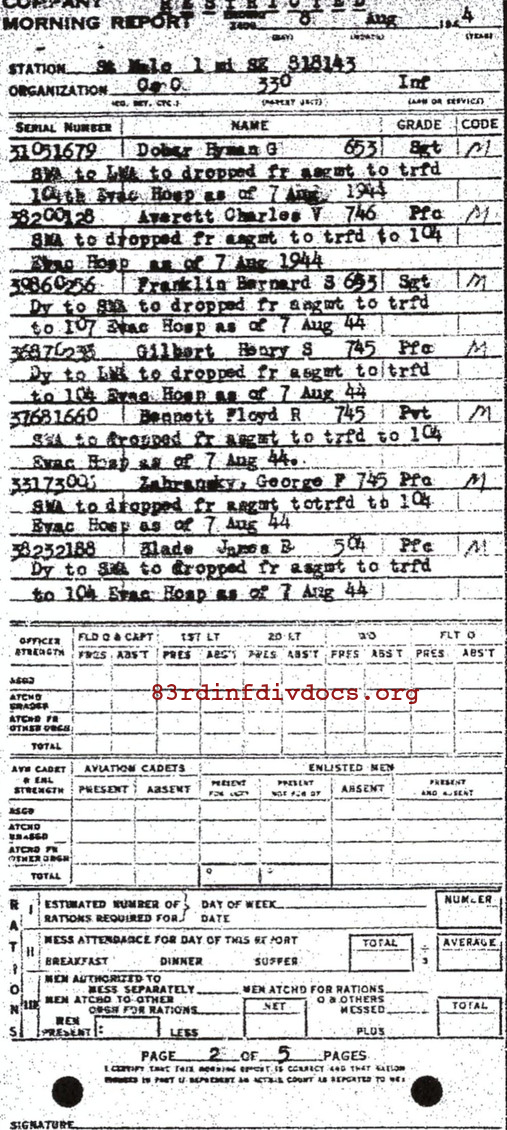 COMPANY RESTRICTED
MORNING REPORT 8 Aug 194 4
(DAY) (MONTH) (YEAR)
STATION St Malo 1 mi SE 818143
ORGANIZATION 330 Inf
(CO, DET, ETC.) (PARENT UNIT) (ARM OR SERVICE)
SERIAL NUMBER NAME GRADE CODE
31051679 Dober Hyman G 653 Sgt M
to LWA to dropped fr asgmt to trfd
104th Evac Hosp as of 7 Aug 1944
38200128 Averett Charles V 746 Pfc M
SWA to dropped fr asgmt to trfd to 104
Evac Hosp as of 7 Aug 1944
39860256 Franklin Bernard S 653 Sgt M
Dy to SWA to dropped fr asgmt to trfd
to 107 Evac Hosp as of 7 Aug 44
Gilbert Henry S 745 Pfc M
Dy to LWA to dropped fr asgmt to trfd
to 104 Evac Hosp as of 7 Aug 44
37681660 Bennett Floyd R 745 Pvt M
SWA to dropped fr asgmt to trfd to 104
Evac Hosp as of 7 Aug 44.
Zahransky, George P 745 Pfc M
SWA to dropped fr asgmt totrfd to 104
Evac Hosp as of 7 Aug 44
38232188 James E 504 Pfc M
Dy to SWA to dropped fr asgmt to trfd
to 104 Evac Hosp as of 7 Aug 44
OFFICER STRENGTH FLD O & CAPT 1ST LT 2D LT WO FLT O
PRES ABS'T PRES ABS'T PRES ABS'T PRES ABS'T PRES ABS'T
ASGD
ATCHD UNASGD
ATCHD FR OTHER ORGN
TOTAL
83rdinfdivdocs.org
AVN CADET & ENL STRENGTH AVIATION CADETS ENLISTED MEN
PRESENT ABSENT PRESENT FOR DUTY PRESENT NOT FOR DY ABSENT PRESENT AND ABSENT
ASGD
ATCHD UNASGD
ATCHD FR OTHER ORGN
TOTAL
RATIONS
I ESTIMATED NUMBER OF RATIONS REQUIRED FOR DAY OF WEEK DATE NUMBER
II MESS ATTENDANCE FOR DAY OF THIS REPORT TOTAL ÷ 3 AVERAGE
BREAKFAST DINNER SUPPER
III MEN AUTHORIZED TO MESS SEPARATELY MEN ATCHD FOR RATIONS
MEN ATCHD TO OTHER ORGN FOR RATIONS NET O & OTHERS MESSED TOTAL
MEN PRESENT: LESS PLUS
PAGE 2 OF 5 PAGES
I CERTIFY THAT THIS MORNING REPORT IS CORRECT AND THAT RATION
FIGURES IN PART II REPRESENT AN ACTUAL COUNT AS REPORTED TO ME:
SIGNATURE